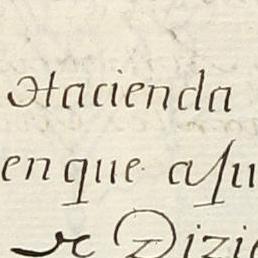 Hacienda
en que aſu
de Dizie